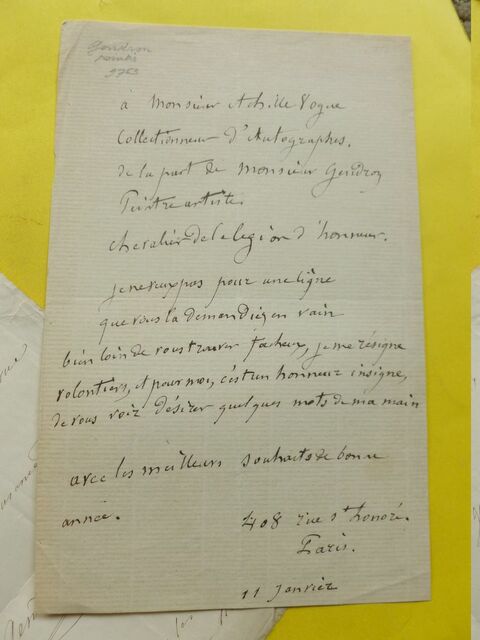 Gendron
peintre
à Monsieur Achille Vogue
Collectionneur d'Autographes.
de la part de Monsieur Gendron
Peintre artiste.
chevalier de la légion d'honneur.
je ne veux pas pour une ligne
que vous la demandiez en vain
bien loin de vous trouver facheux, je me résigne
volontiers, et pour moi, c'est un honneur insigne,
de vous voir désirer quelques mots de ma main
avec les meilleurs souhaits de bonne
année.
408 rue St honoré.
Paris.
11 Janvier